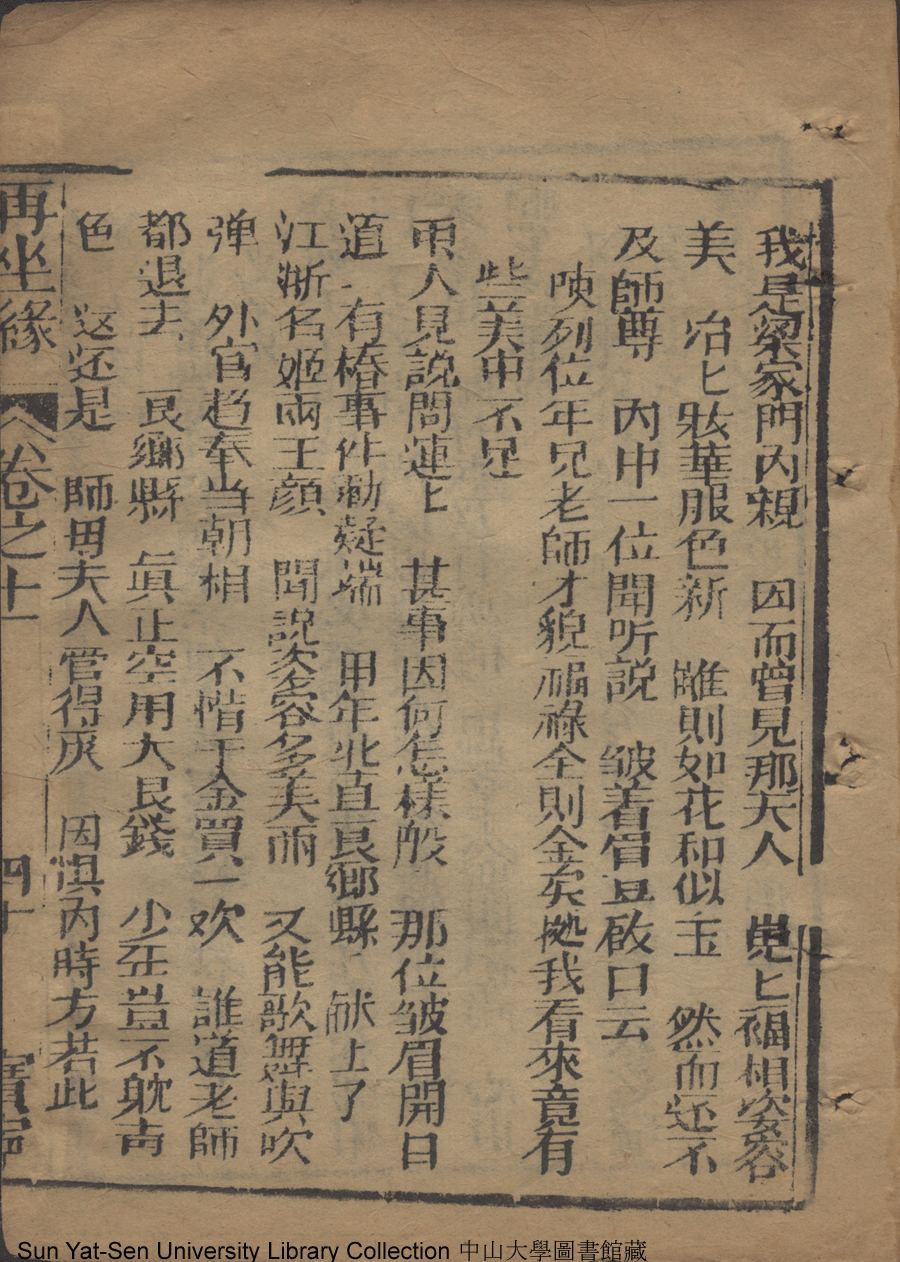 我是梁家門内親　因而曾見那夫人　㒵匕福相姿容
美　冶匕粧華服色新　雖則如花和似玉　然而还不
及師尊　内中一位聞听說　皱着眉豆啟口云
㖿列位年兄老師才貌福祿全則全矣拠我看來竟有
些美中不足
兩人見說問連匕　甚事因何怎樣般　那位皱眉開口
道　有樁事件動疑端　用年北直艮鄉縣　献上了
江浙名姬兩王顔　聞說姿容多美丽　又能歌舞與吹
弹　外官趋奉当朝相　不惜千金買一欢　誰道老師
都退去　艮鄉縣　真正空用大艮錢　少年豈不躭声
色　这还是　師毋夫人管得灰　因惧内時方若此
再坐緣　卷之十一　四十　寶寧
Sun Yat-Sen University Library Collection 中山大學圖書館藏